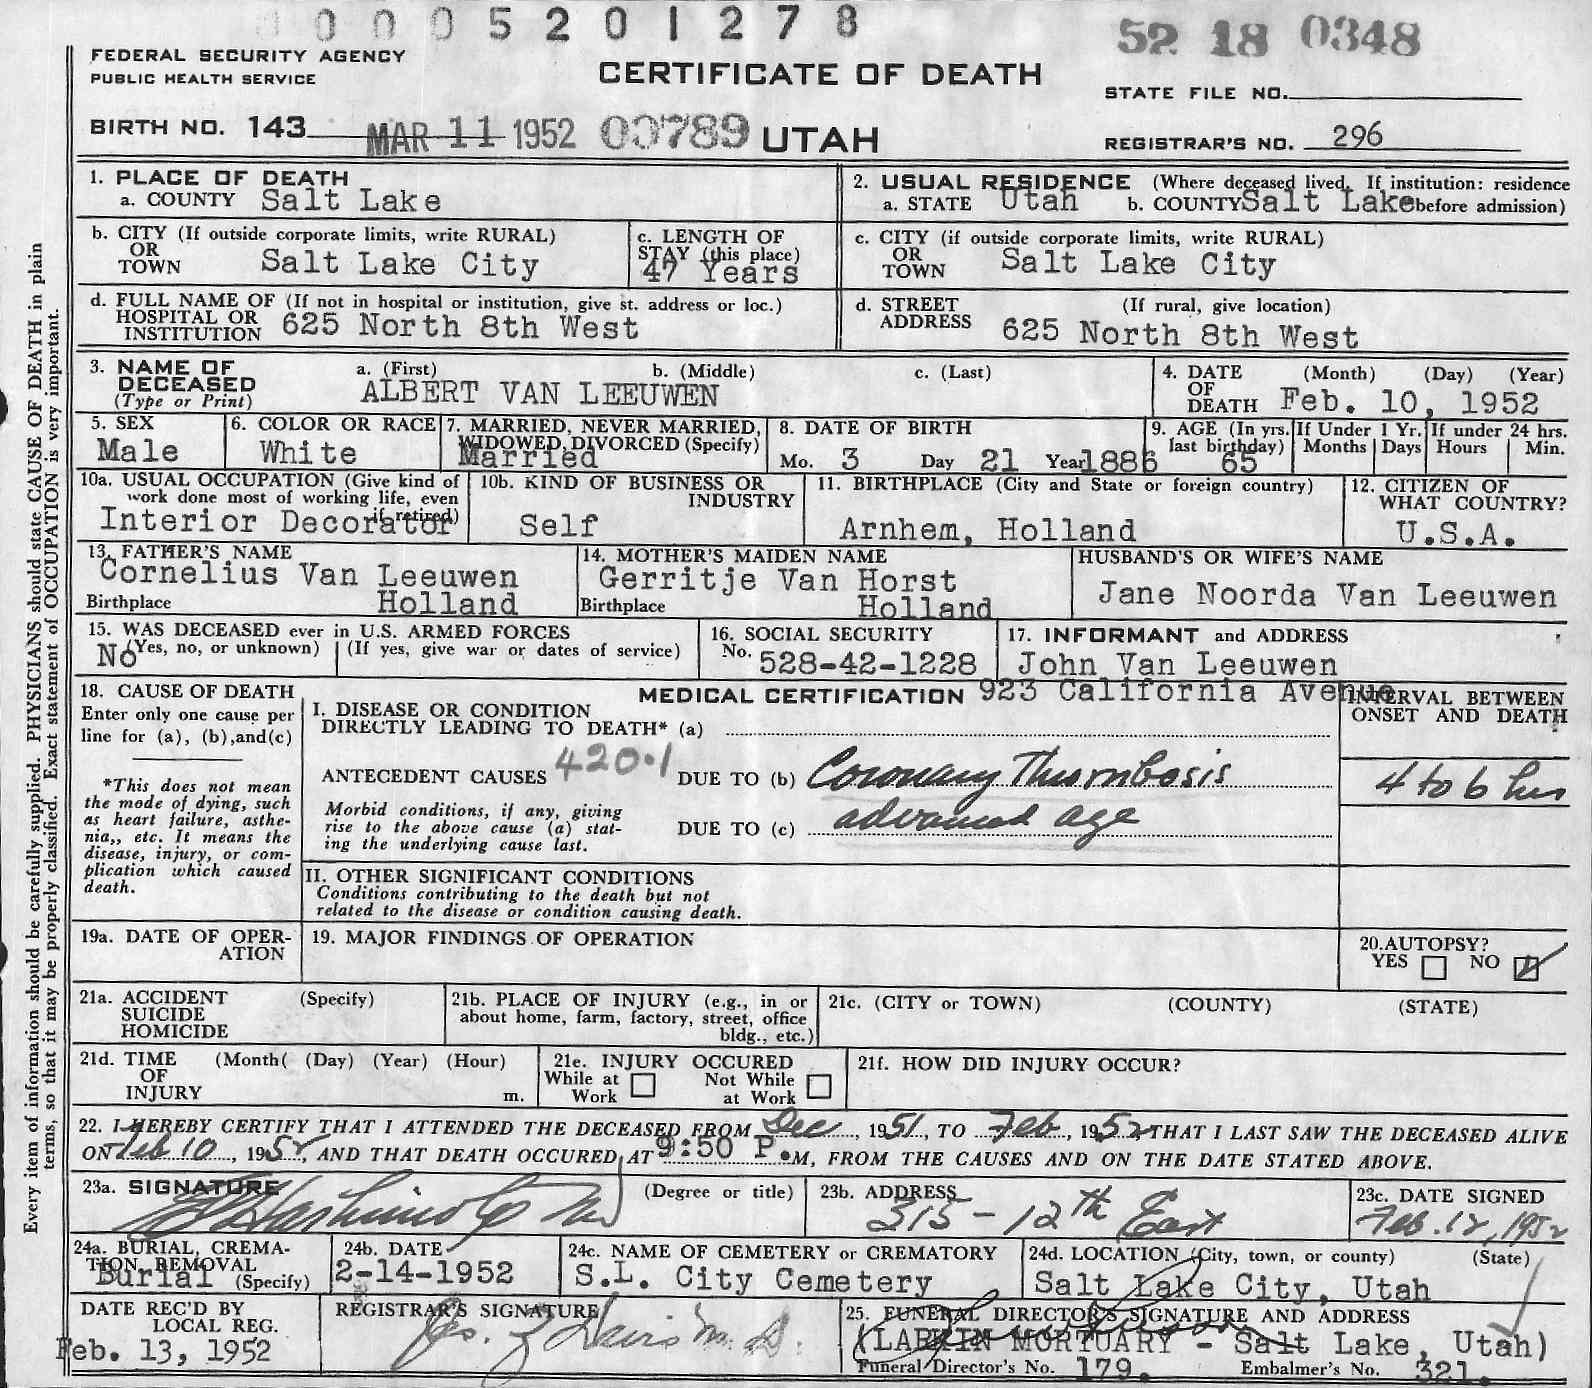 0005201278
52 18 0348
FEDERAL SECURITY AGENCY
PUBLIC HEALTH SERVICE
CERTIFICATE OF DEATH
STATE FILE NO.
BIRTH NO. 143 MAR 11 1952 00789 UTAH
REGISTRAR'S NO. 296
Every item of information should be carefully supplied. PHYSICIANS should state CAUSE OF DEATH in plain
terms, so that it may be properly classified. Exact statement of OCCUPATION is very important.
1. PLACE OF DEATH
a. COUNTY Salt Lake
2. USUAL RESIDENCE (Where deceased lived. If institution: residence
a. STATE Utah b. COUNTY Salt Lake before admission)
b. CITY (If outside corporate limits, write RURAL)
OR
TOWN Salt Lake City
c. LENGTH OF
STAY (this place)
47 Years
c. CITY (if outside corporate limits, write RURAL)
OR
TOWN Salt Lake City
d. FULL NAME OF (If not in hospital or institution, give st. address or loc.)
HOSPITAL OR
INSTITUTION 625 North 8th West
d. STREET (If rural, give location)
ADDRESS 625 North 8th West
3. NAME OF a. (First) b. (Middle) c. (Last)
DECEASED
(Type or Print) ALBERT VAN LEEUWEN
4. DATE (Month) (Day) (Year)
OF
DEATH Feb. 10, 1952
5. SEX
Male
6. COLOR OR RACE
White
7. MARRIED, NEVER MARRIED,
WIDOWED, DIVORCED (Specify)
Married
8. DATE OF BIRTH
Mo. 3 Day 21 Year 1886
9. AGE (In yrs.
last birthday)
65
If Under 1 Yr.
Months Days
If under 24 hrs.
Hours Min.
10a. USUAL OCCUPATION (Give kind of
work done most of working life, even
if retired)
Interior Decorator
10b. KIND OF BUSINESS OR
INDUSTRY
Self
11. BIRTHPLACE (City and State or foreign country)
Arnhem, Holland
12. CITIZEN OF
WHAT COUNTRY?
U.S.A.
13. FATHER'S NAME
Cornelius Van Leeuwen
Birthplace Holland
14. MOTHER'S MAIDEN NAME
Gerritje Van Horst
Birthplace Holland
HUSBAND'S OR WIFE'S NAME
Jane Noorda Van Leeuwen
15. WAS DECEASED ever in U.S. ARMED FORCES
(Yes, no, or unknown) (If yes, give war or dates of service)
No
16. SOCIAL SECURITY
No. 528-42-1228
17. INFORMANT and ADDRESS
John Van Leeuwen
923 California Avenue
18. CAUSE OF DEATH
Enter only one cause per
line for (a), (b),and(c)
*This does not mean
the mode of dying, such
as heart failure, asthe-
nia,, etc. It means the
disease, injury, or com-
plication which caused
death.
MEDICAL CERTIFICATION
INTERVAL BETWEEN
ONSET AND DEATH
I. DISEASE OR CONDITION
DIRECTLY LEADING TO DEATH* (a)
ANTECEDENT CAUSES 420.1 DUE TO (b) Coronary Thrombosis 4 to 6 hrs
Morbid conditions, if any, giving
rise to the above cause (a) stat-
ing the underlying cause last.
DUE TO (c) advanced age
II. OTHER SIGNIFICANT CONDITIONS
Conditions contributing to the death but not
related to the disease or condition causing death.
19a. DATE OF OPER-
ATION
19. MAJOR FINDINGS OF OPERATION
20.AUTOPSY?
YES NO
21a. ACCIDENT (Specify)
SUICIDE
HOMICIDE
21b. PLACE OF INJURY (e.g., in or
about home, farm, factory, street, office
bldg., etc.)
21c. (CITY or TOWN) (COUNTY) (STATE)
21d. TIME (Month( (Day) (Year) (Hour)
OF
INJURY m.
21e. INJURY OCCURED
While at Work Not While at Work
21f. HOW DID INJURY OCCUR?
22. I HEREBY CERTIFY THAT I ATTENDED THE DECEASED FROM Dec, 1951, TO Feb, 1952 THAT I LAST SAW THE DECEASED ALIVE
ON Feb 10, 1952, AND THAT DEATH OCCURED AT 9:50 P.M, FROM THE CAUSES AND ON THE DATE STATED ABOVE.
23a. SIGNATURE (Degree or title)
Hashimoto MD
23b. ADDRESS
315 - 12th East
23c. DATE SIGNED
Feb. 12, 1952
24a. BURIAL, CREMA-
TION, REMOVAL
Burial (Specify)
24b. DATE
2-14-1952
24c. NAME OF CEMETERY or CREMATORY
S.L. City Cemetery
24d. LOCATION (City, town, or county) (State)
Salt Lake City, Utah
DATE REC'D BY
LOCAL REG.
Feb. 13, 1952
REGISTRAR'S SIGNATURE
Davis M.D.
25. FUNERAL DIRECTOR'S SIGNATURE AND ADDRESS
(LARKIN MORTUARY - Salt Lake, Utah)
Funeral Director's No. 179. Embalmer's No. 321.